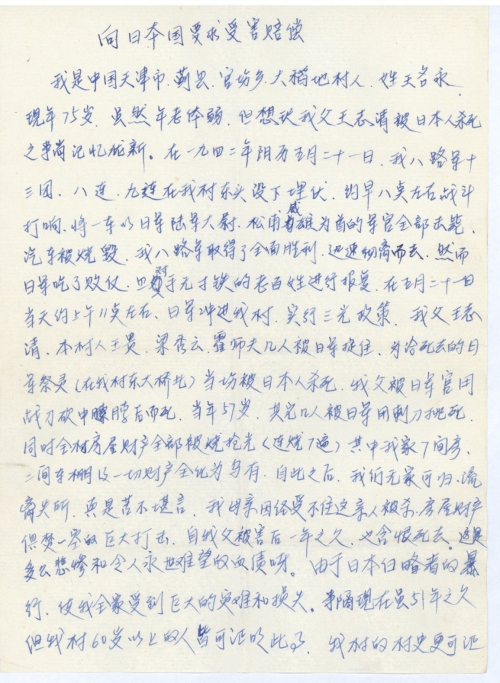 向日本国要求受害赔偿
我是中国天津市.蓟县.官场乡大稻地村人.姓王名永.
现年75岁.虽然年老体弱.但想起我父王志清被日本人杀死
之事尚记忆尤新。在一九四二年阳历五月二十一日.我八路军十
三团.八连.九连在我村东头设下埋伏.约早八点左右战斗
打响.将一车以日军陆军大尉.松雨威雄为首的军官全部击毙.
汽车被烧毁.我八路军取得了全面胜利.迅速撤离而去.然而
日军吃了败仗.对手无寸铁的老百姓进行报复.在五月二十一日
当天约上午11点左右.日军冲进我村.实行三光政策.我父王志
清.本村人王贵.梁秀云.霍师夫几人被日军抓住.为给死去的日
军祭灵(在我村东大桥北)当场被日本人杀死.我父被日军官用
战刀砍中脖后而死.当年57岁.其余几人被日军用刺刀挑死.
同时全村房屋财产全部被烧抢光(连烧7遍)其中我家7间房.
二间车棚及一切财产全化为乌有.自此之后.我们无家可归.流
离失所.真是苦不堪言.我母亲因经受不住这亲人被杀.房屋财产
俱焚一空的巨大打击.自我父被害后一年之久.也含恨死去.这是
多么悲惨和令人永世难望的血债呀。由于日本侵略者的暴
行.使我全家受到巨大的灾难和损失.事隔现在虽51年之久
但我村60岁以上的人皆可证明此事.我村的村史更可证